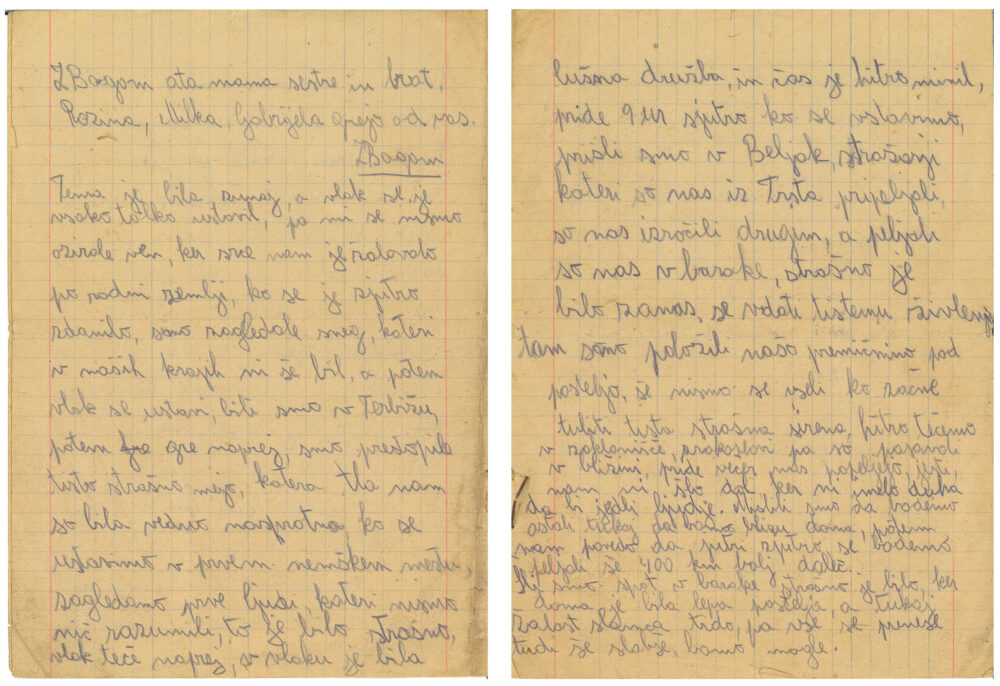 ZBoagom ata mama sestre in brat.
Rozina, Milka, Gabrijela grejo od vas.
ZBoagom
Tema je bila zunaj, a vlak se je
vsako tolko ustavil, pa mi se nismo
ozirale ven, ker sve nam je žalovalo
po rodni zemlji, ko se je zjutro
zdanilo, smo zagledale sneg, kateri
v naših krajih ni še bil, a potem
vlak se ustavi, bili smo v Terbižu,
potem gre naprej, smo prestopile
tisto strašno mejo, katera tla nam
so bila vedno nasprotna, ko se
ustavimo v prvem nemškem mestu,
zagledamo prve ljudi, kateri nismo
nič razumili, to je bilo strašno,
vlak teče naprej, v vlaku je bila
lušna družba, in čas je hitro minil,
pride 9 ur sjutro ko se vstavimo,
prišli smo v Beljak, stražarji
kateri so nas iz Trsta pripeljali,
so nas izročili drugim, a peljali
so nas v barake, strašno je
bilo zanas, se vdati tistemu življenju
tam smo položili našo premičnino pod
posteljo, še nismo se vseli ko začne
tuliti tista strašna sirena, hitro tečemo
v zaklonišče, pa so
v bližini, pride večer, nas popeljejo jesti,
nam ni šlo dol ker ni imelo duha
da bi jedli ljudje. Mislili smo da bodemo
ostali tukaj da bomo blizu doma, potem
nam povedo da jutri zjutro se bodemo
peljali še 400 km bolj daleč.
smo spat v barake strašno je bilo, ker
doma je bila lepa postelja, a tukaj
žalost slamca trdo, pa vse se prenese
tudi še slabše, bomo mogle.